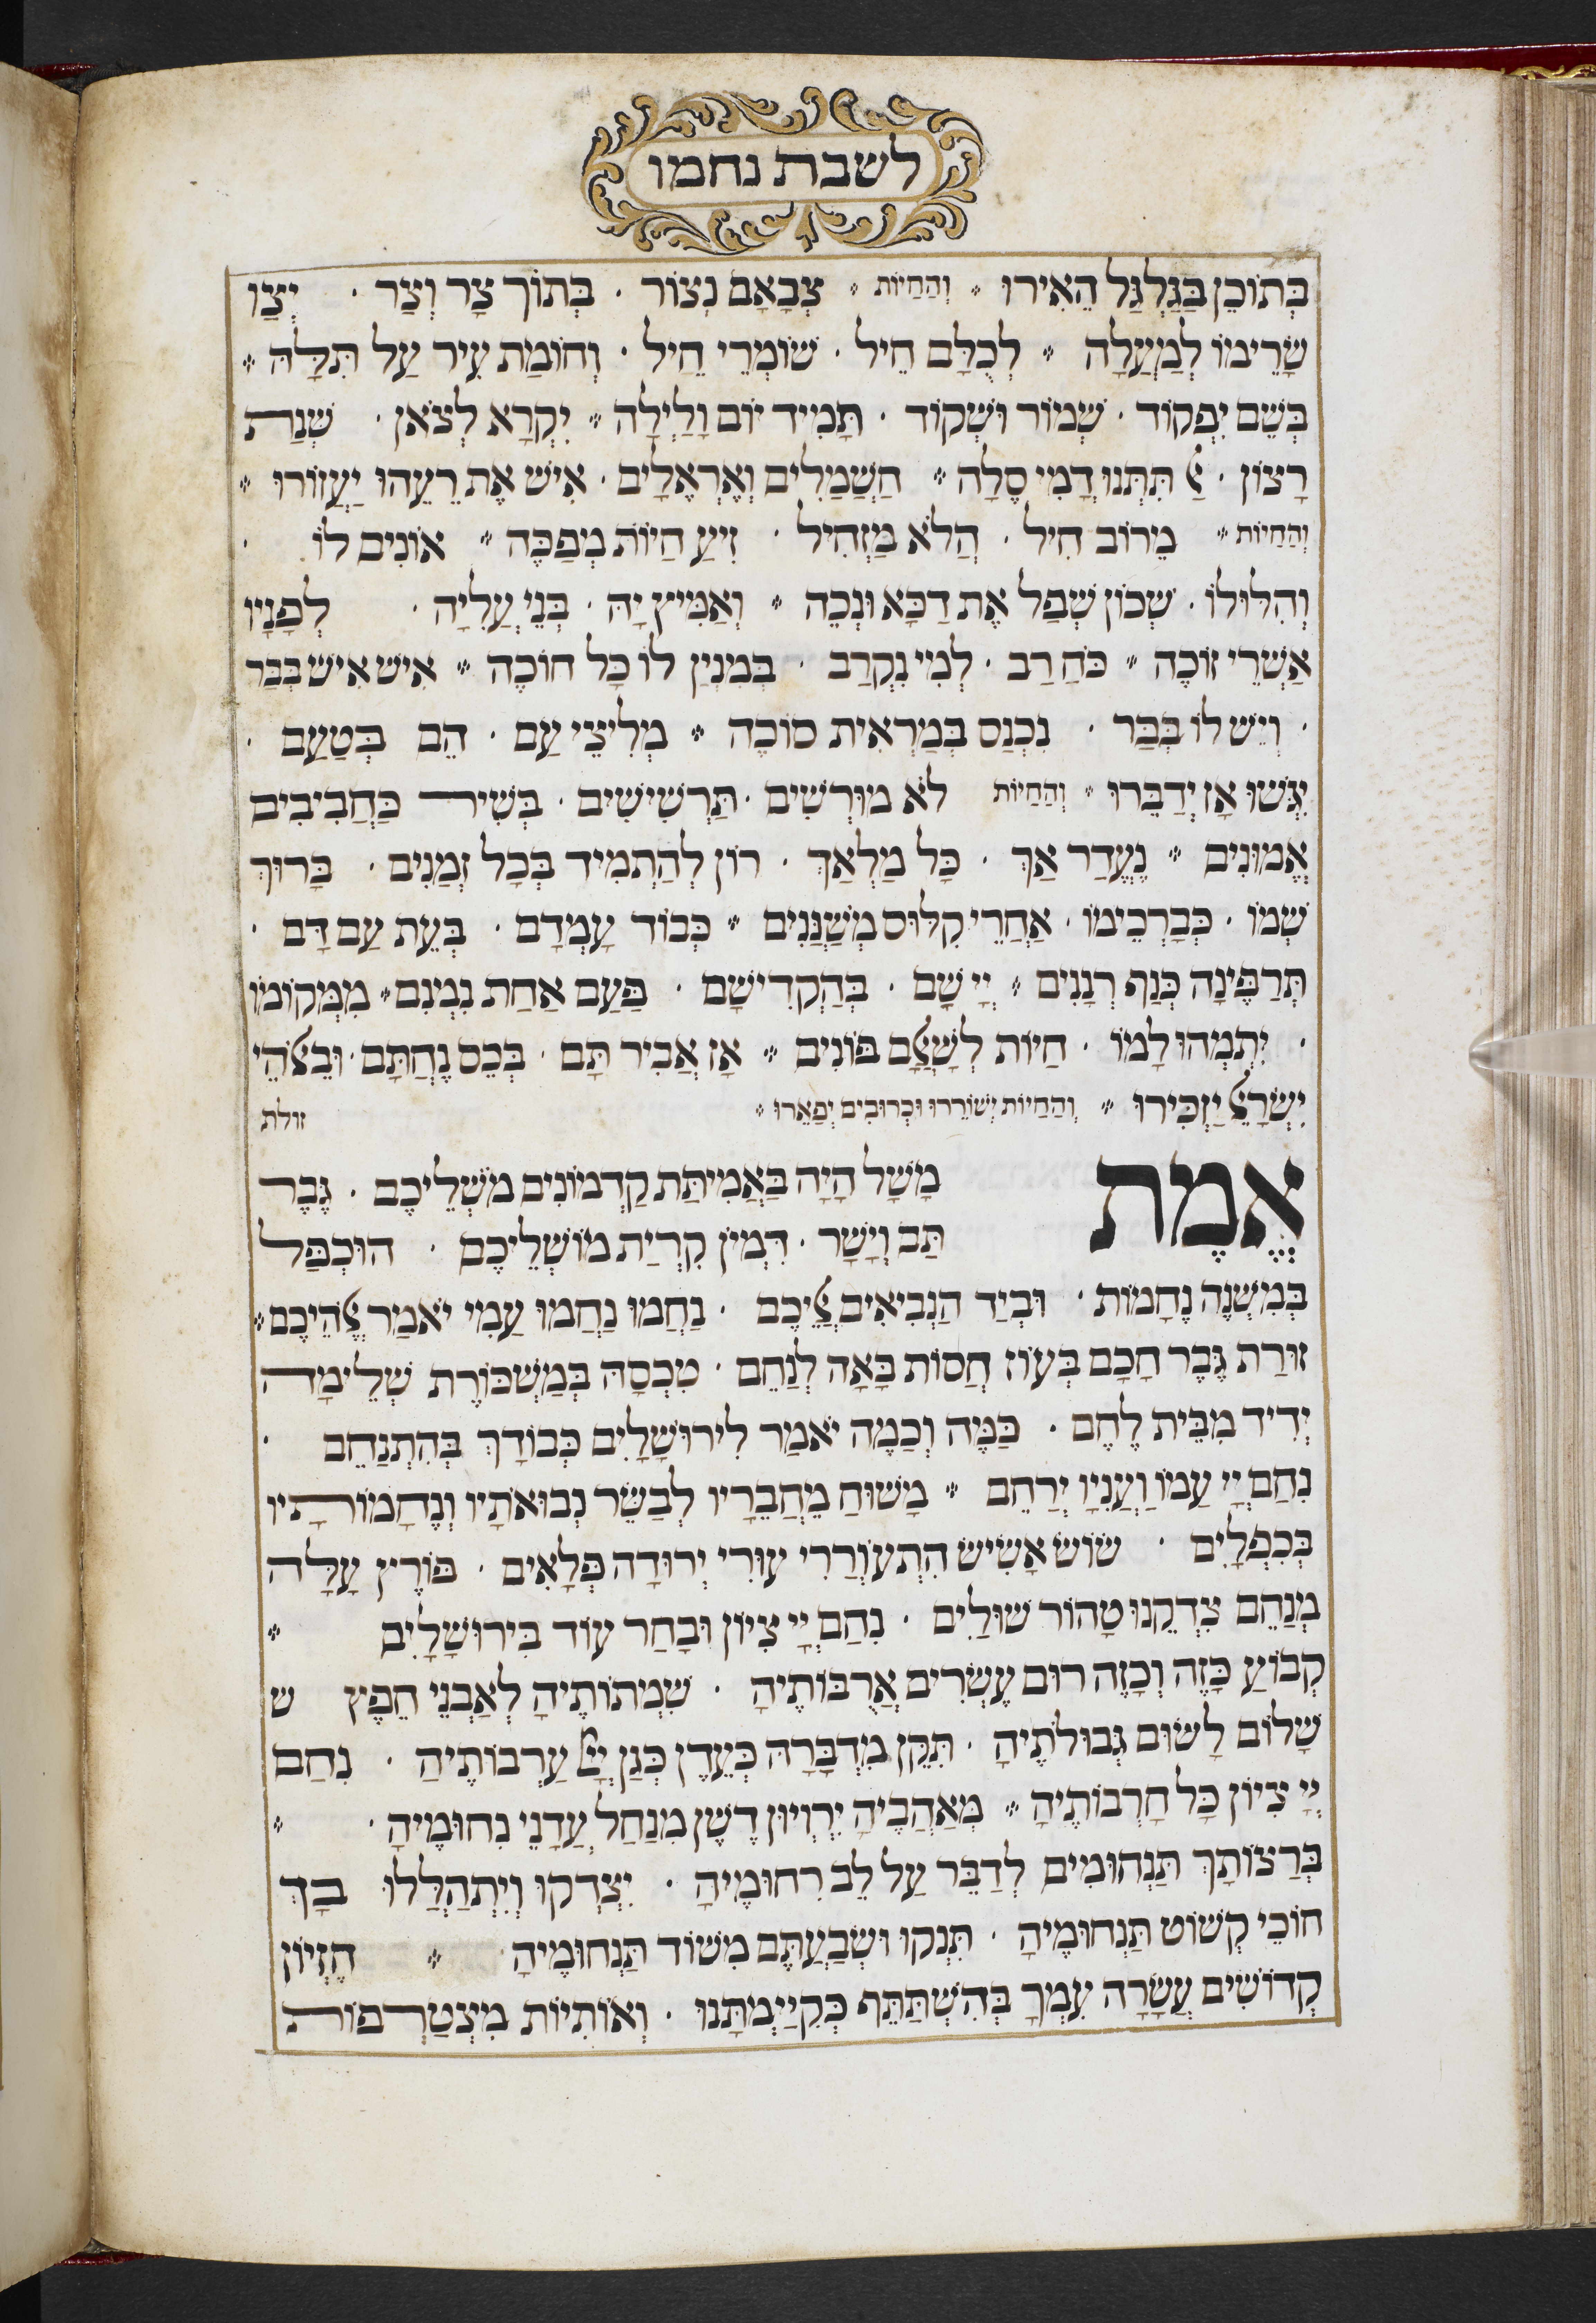 לשבת נחמו
בְּתוֹכֵן בַּגַּלְגַּל הֵאִירוּ * וְהַחַיּוֹת * צְבָאָם נְצוֹר · בְּתוֹךְ צָר וְצַר · יְצַו
שָׂרֵימוֹ לְמַעְלָה * לְכֻלָּם חֵיל · שׁוֹמְרֵי חֵיל · וְחוֹמַת עִיר עַל תִּלָּהּ *
בְּשֵׁם יִפְקוֹד · שְׁמוֹר וּשְׁקוֹד · תָּמִיד יוֹם וָלַיְלָה * יִקְרָא לְצֹאן · שְׁנַת
רָצוֹן · אַל תִּתְּנוּ דֳמִי סֶלָה * חַשְׁמַלִים וְאֶרְאֶלִים · אִישׁ אֶת רֵעֵהוּ יַעְזוֹרוּ *
וְהַחַיּוֹת * מֵרוֹב חִיל · הֲלֹא מַזְחִיל · זִיעַ חַיּוֹת מְפַכֶּה * אוֹנִים לוֹ ·
וְהִלּוּלוֹ · שְׁכוֹן שְׁפַל אֶת דַכָּא וּנְכֵה * וְאַמִּיץ יָהּ · בְּנֵי עֲלִיָּה · לְפָנָיו
אַשְׁרֵי זוֹכֶה * כֹּחַ רַב · לְמִי נִקְרַב · בְּמִנְיַן לוֹ כָּל חוֹכֶה * אִישׁ אִישׁ בְּבַר
· וְיֵשׁ לוֹ בְּבַר · נִכְנַס בְּמַרְאִית סוֹכֶה * מְלִיצֵי עַם · הֵם בְּטַעַם ·
יִגְּשׁוּ אָז יְדַבֵּרוּ * וְהַחַיּוֹת לֹא מוּרְשִׁים · תַּרְשִׁישִׁים · בְּשִׁיר כַּחֲבִיבִים
אֱמוּנִים * נֶעֱדַר אַךְ · כָּל מַלְאַךְ · רוֹן לְהַתְמִיד בְּכָל זְמַנִּים · בָּרוּךְ
שְׁמוֹ · כְּבָרְכֵימוֹ · אַחֲרֵי קִלּוּס מְשַׁנְּנִים * כְּבוֹד עָמְדָם · בְּעֵת עַם דָּם ·
תְּרַפֶּינָה כְּנַף רְנָנִים * יְיָ שָׁם · בְּהַקְדִּישָׁם · פַּעַם אַחַת נִמְנִם * מִמְּקוֹמוֹ
· יִתְמְהוּ לָמוֹ · חַיּוֹת לְשָׁאֳלָם בּוֹנִים * אָז אֲבִיר תָּם · בְּכֵס נֶחְתָּם · וּבֵאלֹהֵי
יִשְׂרָאֵל יַזְכִּירוּ * וְהַחַיּוֹת יְשׁוֹרֵרוּ וּכְרוּבִים יְפָאֵרוּ * זולת
אֱמֶת מָשָׁל הָיָה בַּאֲמִיתַּת קַדְמוֹנִים מֹשְׁלֵיכֶם · גֶּבֶר
תַּב וְיָשָׁר · דִּמְיוֹן קִרְיַת מוֹשְׁלֵיכֶם · הוּכְפַּל
בְּמִשְׁנֶה נֶחָמוֹת · וּבְיַד הַנְּבִיאִים אֲלֵיכֶם · נַחֲמוּ נַחֲמוּ עַמִּי יֹאמַר אֱלֹהֵיכֶם *
זוּרַת גֶּבֶר חָכָם בְּעוֹז חֲסוֹת בָּאָה לְנַחֵם · טִכְסָהּ בְּמַשְׂכּוֹרֶת שְׁלֵימָה
יְדִיד מִבֵּית לֶחֶם · כַּמֶּה וְכַמֶּה יֹאמַר לִירוּשָׁלַיִם כְּבוֹדָךְ בְּהִתְנַחֵם ·
נִחַם יְיָ עַמּוֹ וַעֲנִיָּו יְרַחֵם * מָשׁוּחַ מֵחֲבֵרָיו לְבַשֵּׂר נְבוּאֹתָיו וְנֶחָמוֹתָיו
בְּכִפְלָיִם · שׂוֹשׂ אָשִׂישׂ הִתְעוֹרֲרִי עוּרִי יְרוּדָה פְּלָאִים · פּוֹרֵץ עָלָה
מְנַחֵם צִדְקֵנוּ טָהוֹר שׁוּלַיִם · נִחַם יְיָ צִיּוֹן וּבָחַר עוֹד בִּירוּשָׁלָיִם *
קְבוֹעַ כָּזֶה וְכָזֶה רוּם עֶשְׂרִים אֲרֻבּוֹתֶיהָ · שִׁמְתוֹתֶיהָ לְאַבְנֵי חֵפֶץ ש
שָׁלוֹם לָשׂוּם גְּבוּלֹתֶיהָ · תִּקֵּן מִדְבָּרָהּ כְּעֵדֶן כְּגַן יְיָ עַרְבוֹתֶיהַ · נִחַם
יְיָ צִיּוֹן כָּל חָרְבוֹתֶיהָ * מְּאַהֲבֶיהָ יִרְוְיוּן דֶשֶׁן מִנַּחַל עֲדָנֵי נִחוּמֶיהָ · *
בִּרְצוֹתָךְ תַּנְחוּמִים לְדַבֵּר עַל לֵב רִחוּמֶיהָ · יִצְדְּקוּ וְיִתְהַלְּלוּ בָךְ
חוֹכֵי קְשׁוֹט תַּנְחוּמֶיהָ · תִּנְקוּ וּשְׂבַעְתֶּם מִשּׁוֹד תַּנְחוּמֶיהָ * חֶזְיוֹן
קְדוֹשִׁים עֲשָׂרָה עִמְךָ בְּהִשְׁתַּתֵּף כְּקִיַּימְתָּנוּ · וְאוֹתִיּוֹת מִצְטָרְפוֹת